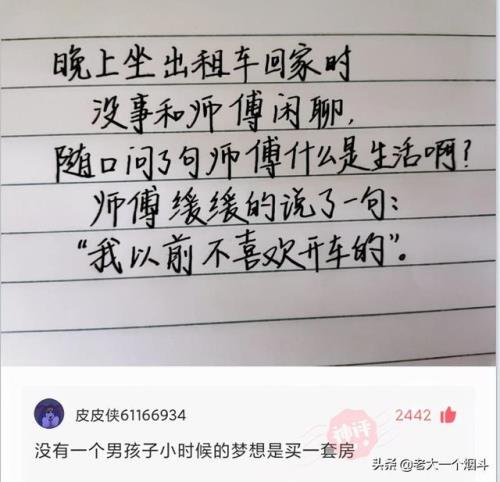 晚上坐出租车回家时
没事和师傅闲聊,
随口问了句师傅什么是生活啊?
师傅缓缓的说了一句:
“我以前不喜欢开车的”。
皮皮侠61166934
2442
神评
没有一个男孩子小时候的梦想是买一套房
头条@老大一个烟斗